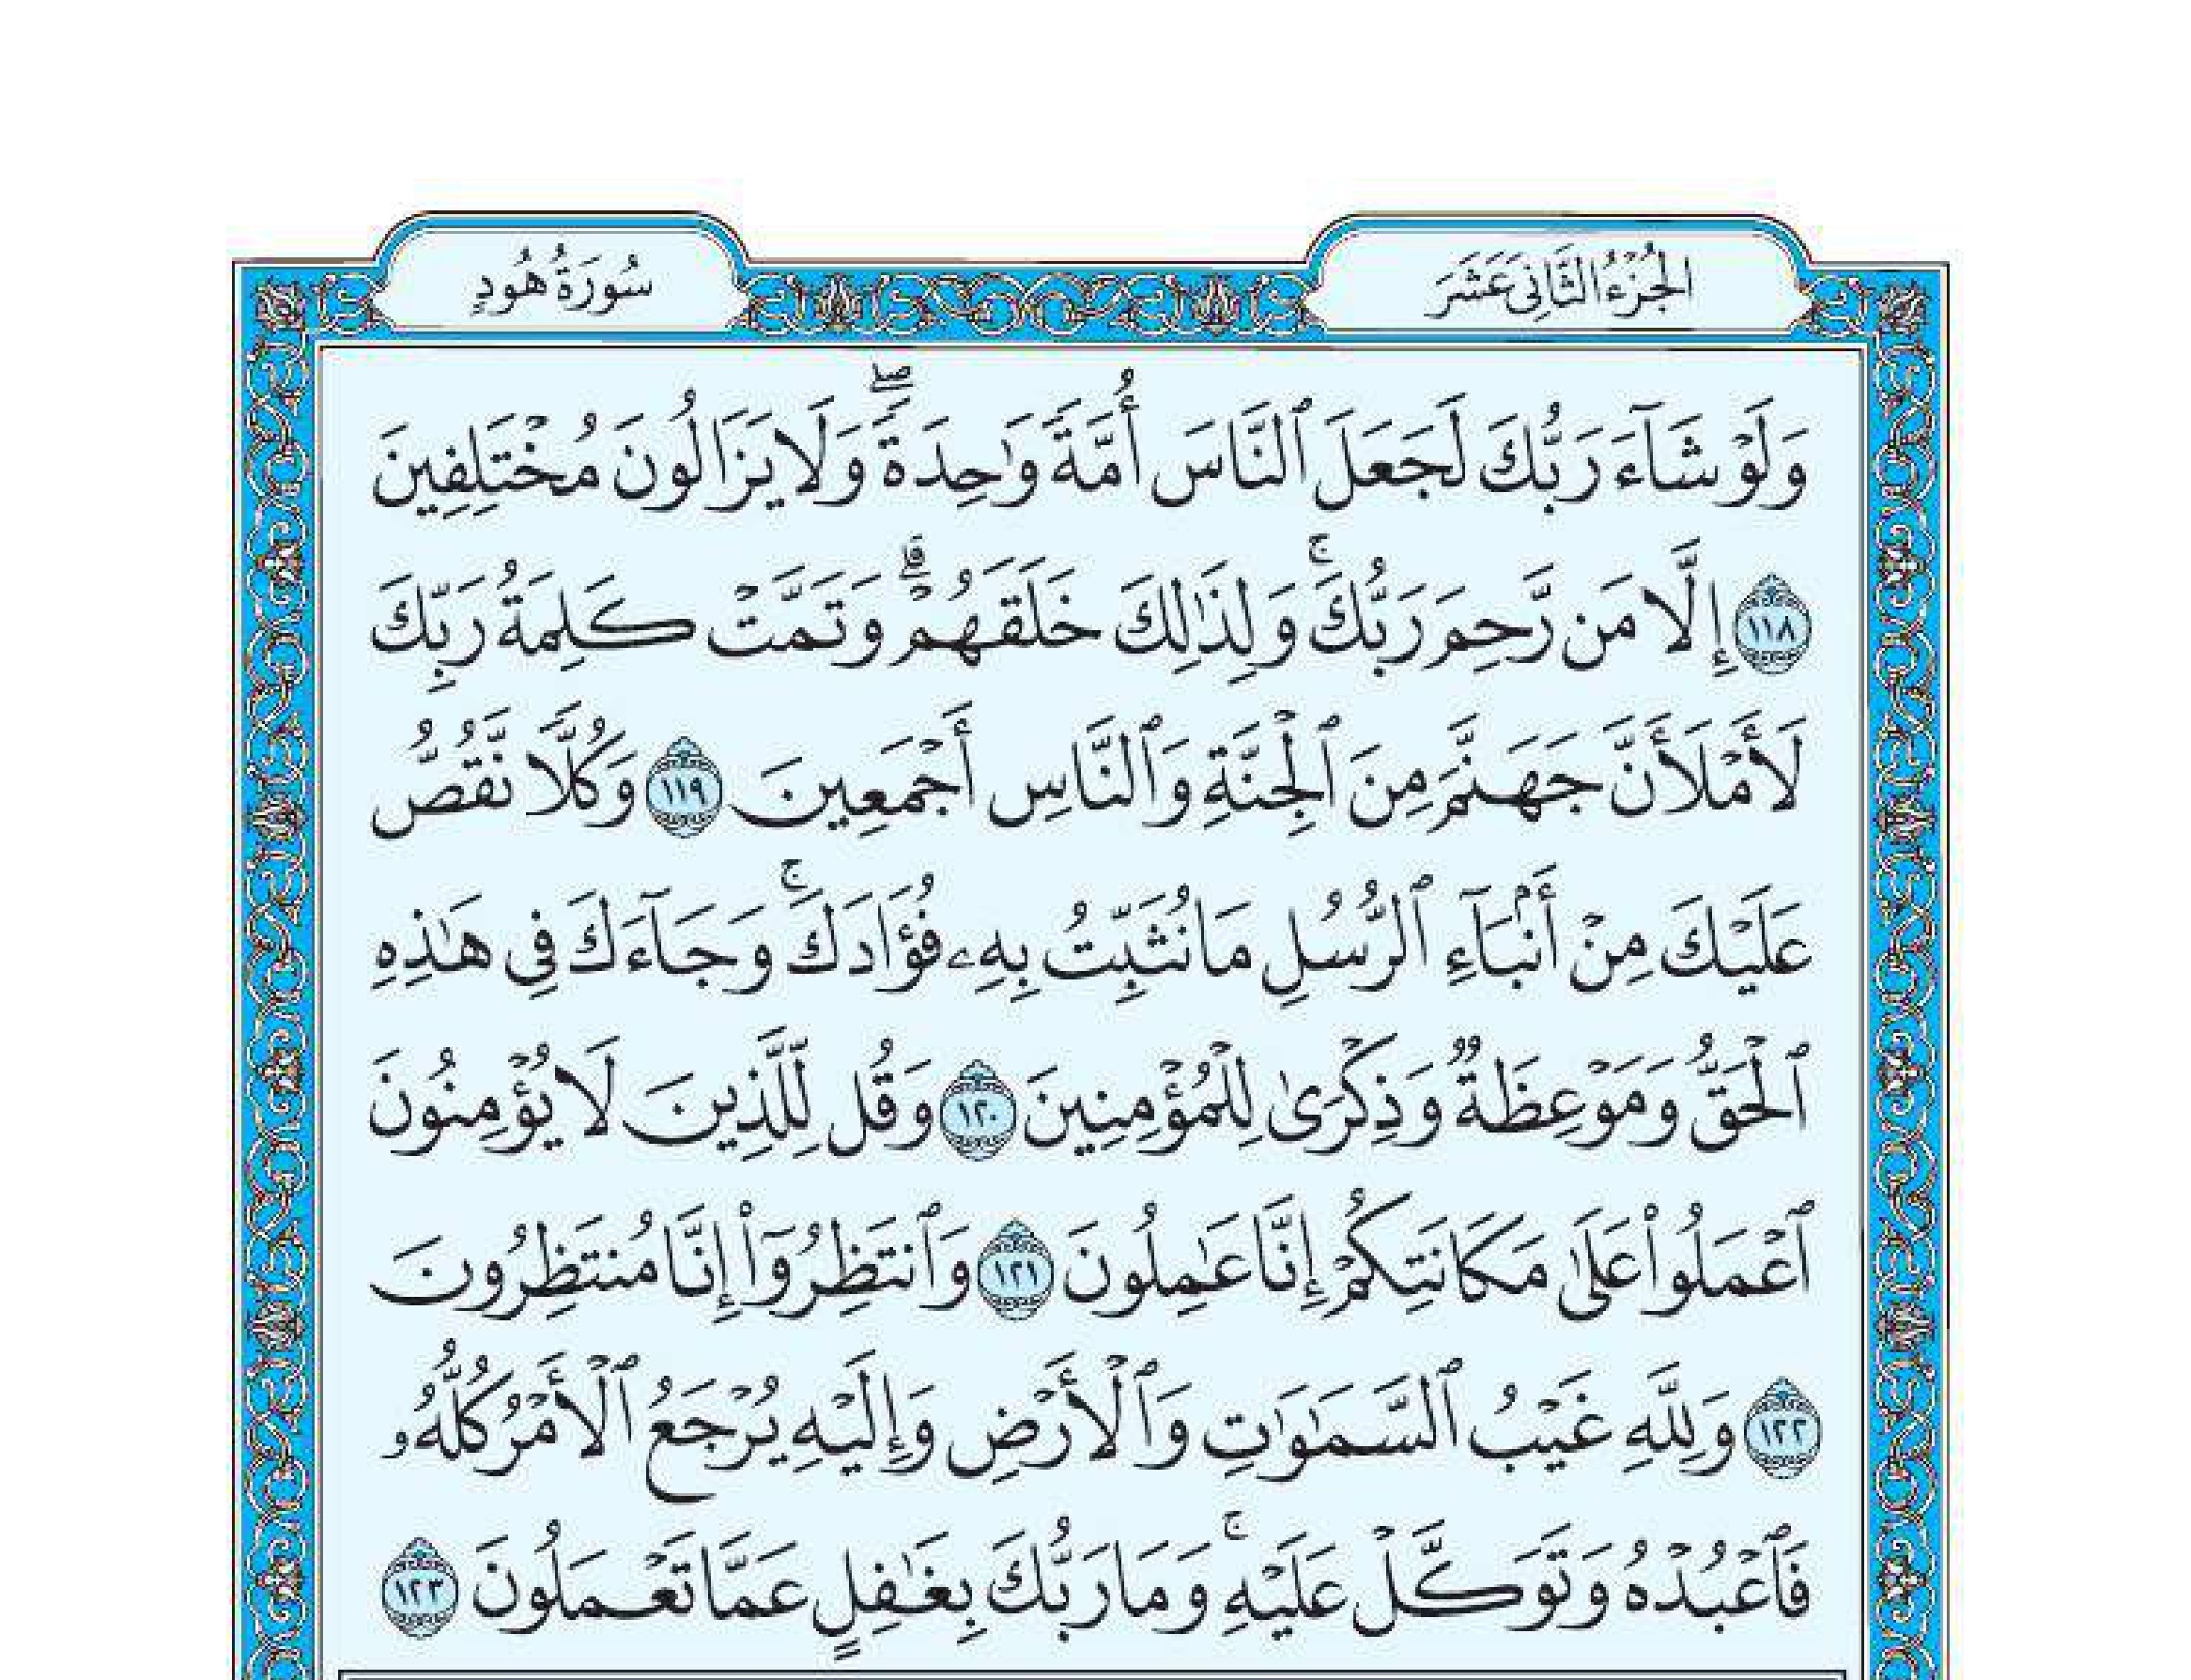 الجُزْءُ الثَّانِي عَشَرَ
سُورَةُ هُودٍ
وَلَوْ شَآءَ رَبُّكَ لَجَعَلَ ٱلنَّاسَ أُمَّةً وَٰحِدَةً ۖ وَلَا يَزَالُونَ مُخْتَلِفِينَ
١١٨ إِلَّا مَن رَّحِمَ رَبُّكَ ۚ وَلِذَٰلِكَ خَلَقَهُمْ ۗ وَتَمَّتْ كَلِمَةُ رَبِّكَ
لَأَمْلَأَنَّ جَهَنَّمَ مِنَ ٱلْجِنَّةِ وَٱلنَّاسِ أَجْمَعِينَ ١١٩ وَكُلًّا نَّقُصُّ
عَلَيْكَ مِنْ أَنۢبَآءِ ٱلرُّسُلِ مَا نُثَبِّتُ بِهِۦ فُؤَادَكَ ۚ وَجَآءَكَ فِى هَٰذِهِ
ٱلْحَقُّ وَمَوْعِظَةٌ وَذِكْرَىٰ لِلْمُؤْمِنِينَ ١٢٠ وَقُل لِّلَّذِينَ لَا يُؤْمِنُونَ
ٱعْمَلُوا۟ عَلَىٰ مَكَانَتِكُمْ إِنَّا عَٰمِلُونَ ١٢١ وَٱنتَظِرُوٓا۟ إِنَّا مُنتَظِرُونَ
١٢٢ وَلِلَّهِ غَيْبُ ٱلسَّمَٰوَٰتِ وَٱلْأَرْضِ وَإِلَيْهِ يُرْجَعُ ٱلْأَمْرُ كُلُّهُۥ
فَٱعْبُدْهُ وَتَوَكَّلْ عَلَيْهِ ۚ وَمَا رَبُّكَ بِغَٰفِلٍ عَمَّا تَعْمَلُونَ ١٢٣